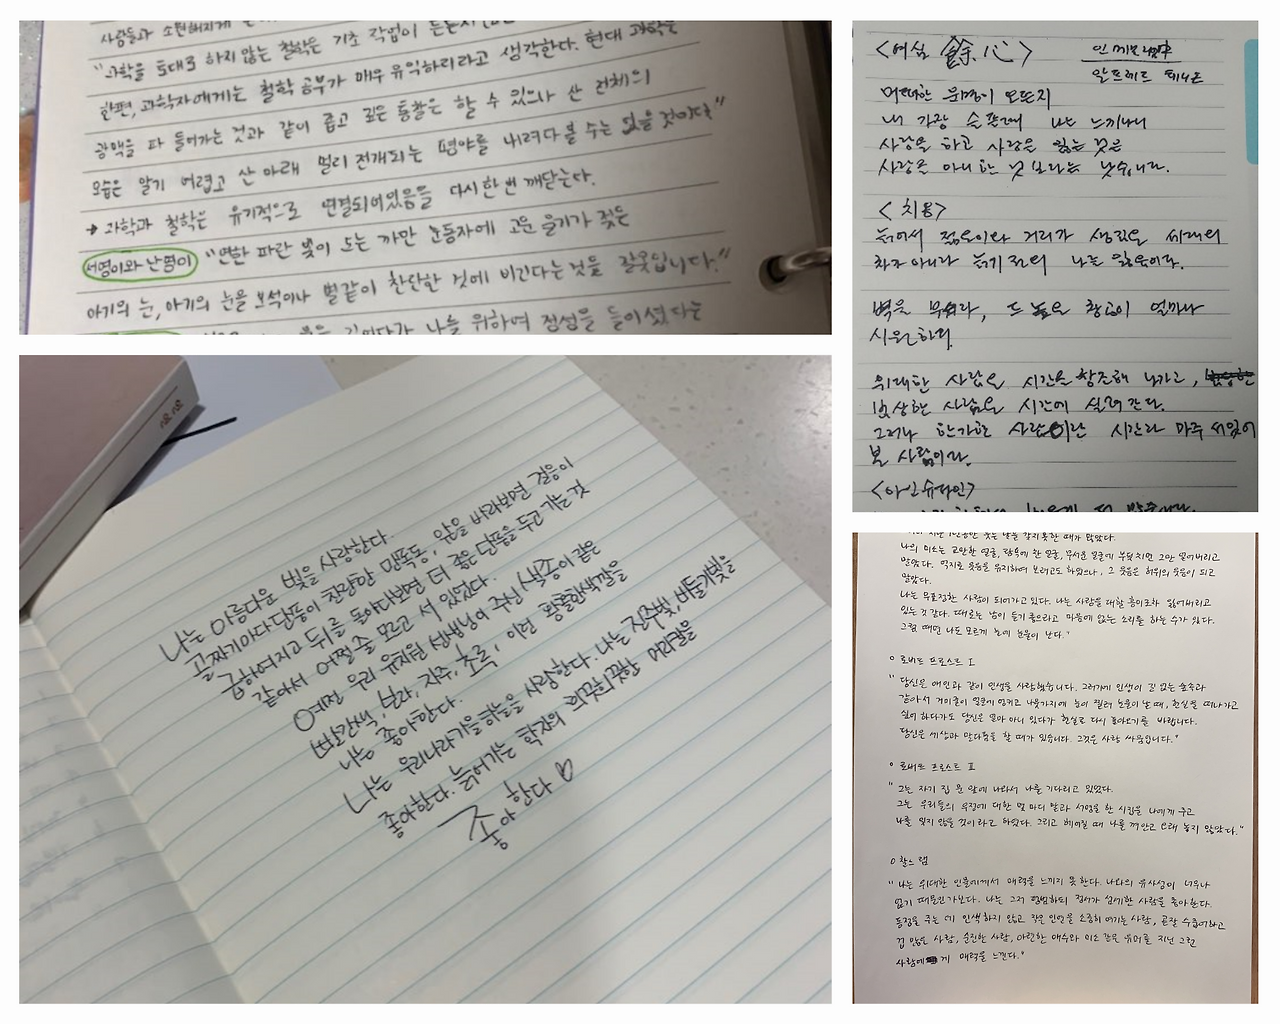 사람들과 소원해지게
"과학을 토대로 하지 않는 철학은 기초 작업이 튼튼치
한편, 과학자에게는 철학 공부가 매우 유익하리라고 생각한다. 현대 과학은
광맥을 파 들어가는 것과 같이 좁고 깊은 통찰은 할 수 있으나 산 전체의
모습은 알기 어렵고 산 아래 멀리 전개되는 평야를 내려다 볼 수는 없을 것이다"
→ 과학과 철학은 유기적으로 연결되어있음을 다시 한 번 깨닫는다.
서영이와 난영이 "연한 파란 빛이 도는 까만 눈동자에 고운 윤기가 젖은
아기의 눈, 아기의 눈을 보석이나 별같이 찬란한 것에 비긴다는 것은 잘못입니다."
나를 위하여 정성을 들이셨다는
나는 아름다운 빛을 사랑한다.
골짜기마다 단풍이 찬란한 만폭동, 앞을 바라보면 걸음이
급하여지고 뒤를 돌아다보면 더 좋은 단풍을 두고 가는 것
같아서 어쩔 줄 모르고 서 있었다.
예전 우리 유치원 선생님이 주신 색종이 같은
빨간색, 보라, 자주, 초록, 이런 황홀한 색깔을
나는 좋아한다.
나는 우리나라 가을 하늘을 사랑한다. 나는 진주빛, 비둘기빛을
좋아한다. 늙어가는 학자의 희끗희끗한 머리칼을
좋아한다♡
<여심 餘心> 인 메모리엄
알프레드 테니슨
어떠한 운명이 오든지
내 가장 슬플 때 나는 느끼나니
사랑을 하고 사랑을 잃는 것은
사랑을 아니 한 것 보다는 낫습니다.
<치옹>
늙어서 젊은이와 거리가 생김은 세대의
차가 아니라 늙기 전의 나를 잃음이다.
벽을 부숴라, 드 높은 창공이 얼마나
시원하리.
위대한 사람은 시간을 창조해 나가고,
범상한 사람은 시간에 실려 간다.
그러나 한가한 사람이란 시간과 마주 서있어
본 사람이다.
<아인슈타인>
나의 미소는 교만한 얼굴, 탐욕에 찬 얼굴, 무서운 얼굴에 부딪치면 그만 얼어버리고
만았다. 억지로 웃음을 유지하여 보려고도 하였으나, 그 웃음은 허위의 웃음이 되고
말았다.
나는 무표정한 사람이 되어가고 있다. 나는 사람을 대할 흥미조차 잃어버리고
있는 것 같다. 때로는 남이 듣기 좋으라고 마음에 없는 소리를 하는 수가 있다.
그럴 때면 나도 모르게 눈에 눈물이 난다."
○ 로버트 프로스트 I
"당신은 애인과 같이 인생을 사랑했습니다. 그러기에 인생이 길 없는 숲속과
같아서 거미줄이 얼굴에 엉키고 나뭇가지에 눈이 찔려 눈물이 날 때, 현실을 떠나가고
싶어 하다가도 당신은 얼마 아니 있다가 현실로 다시 돌아오기를 바랍니다.
당신은 세상과 말다툼을 할 때가 있습니다. 그것은 사랑 싸움입니다."
○ 로버트 프로스트 II
"그는 자기 집 문 앞에 나와서 나를 기다리고 있었다.
그는 우리들의 우정에 대한 몇 마디 말과 서명을 한 시집을 나에게 주고
나를 잊지 않을 것이라고 하였다. 그리고 헤어질 때 나를 껴안고 오래 놓지 않았다."
○ 찰스 램
"나는 위대한 인물에게서 매력을 느끼지 못한다. 나와의 유사성이 너무나
없기 때문인가보다. 나는 그저 평범하되 정서가 섬세한 사람을 좋아한다.
동정을 주는 데 인색하지 않고 작은 인연을 소중히 여기는 사람, 곧잘 수줍어하고
겁 많은 사람, 순진한 사람, 아련한 애수와 미소 같은 유머를 지닌 그런
사람에게 매력을 느낀다."